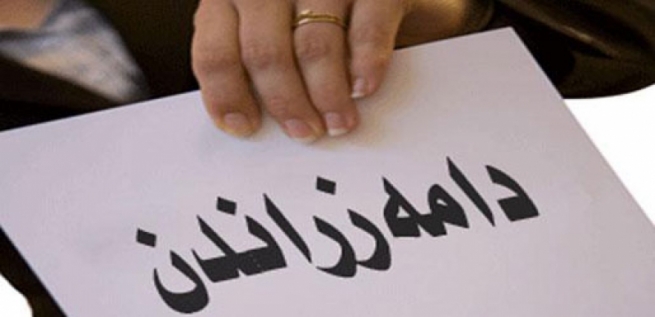 دامەرزاندن